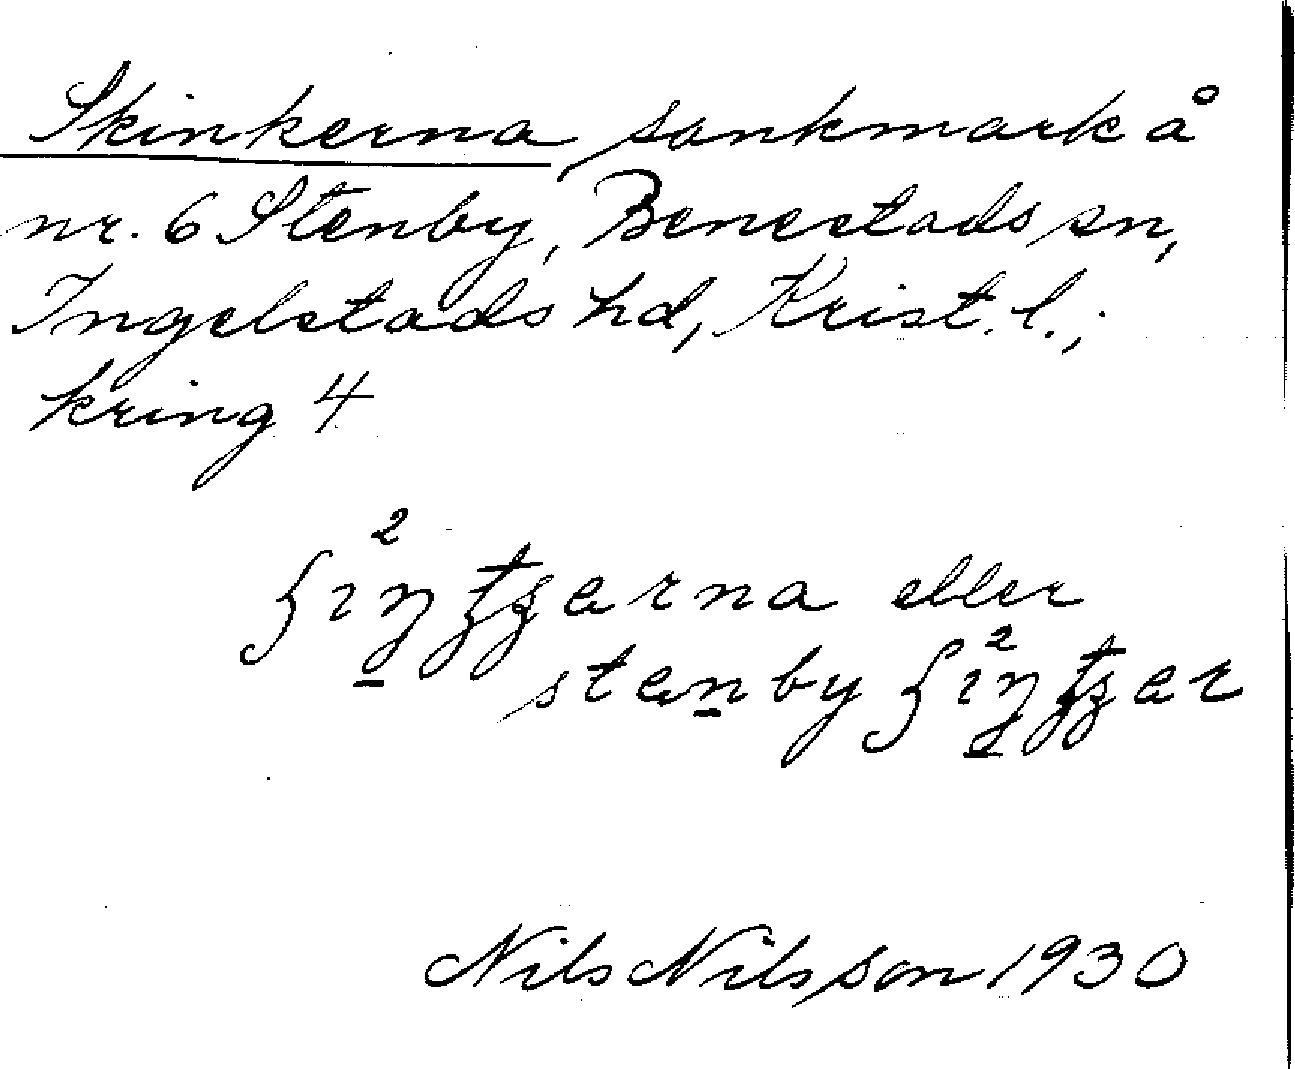 Skinkerna, sankmark å
nr. 6 Stenby, Benestads sn,
Ingelstads hd, Krist. l.;
kring 4
eller
stenby
Nils Nilsson 1930